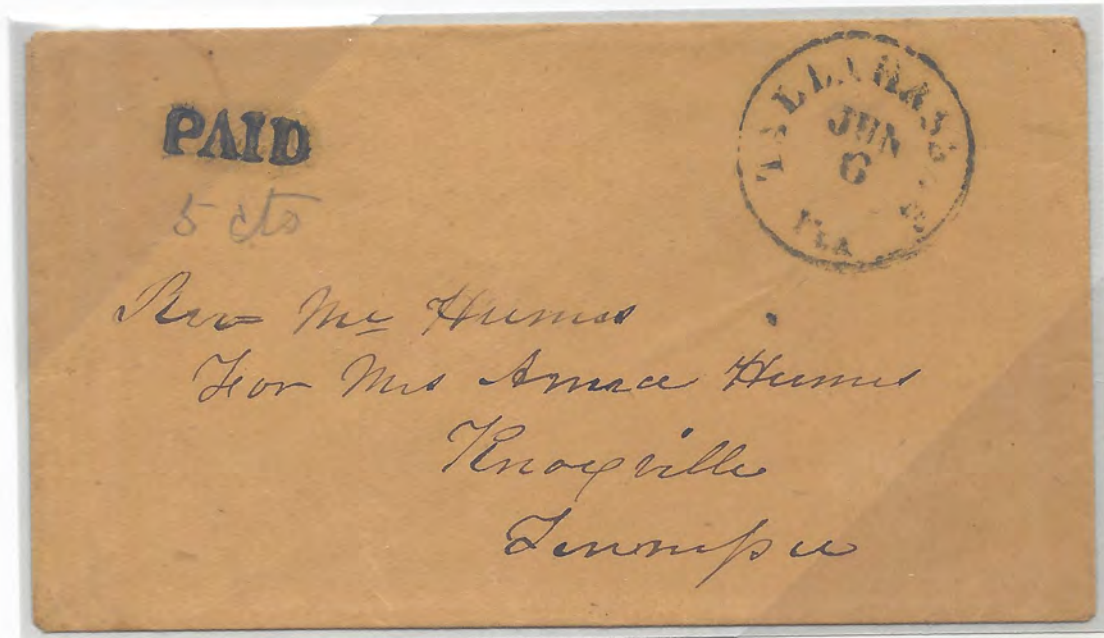 PAID
5 cts
TALLAHASSEE
JUN
6
FLA
Rev Mr Humes
For Mrs Anna Humes
Knoxville
Tennessee